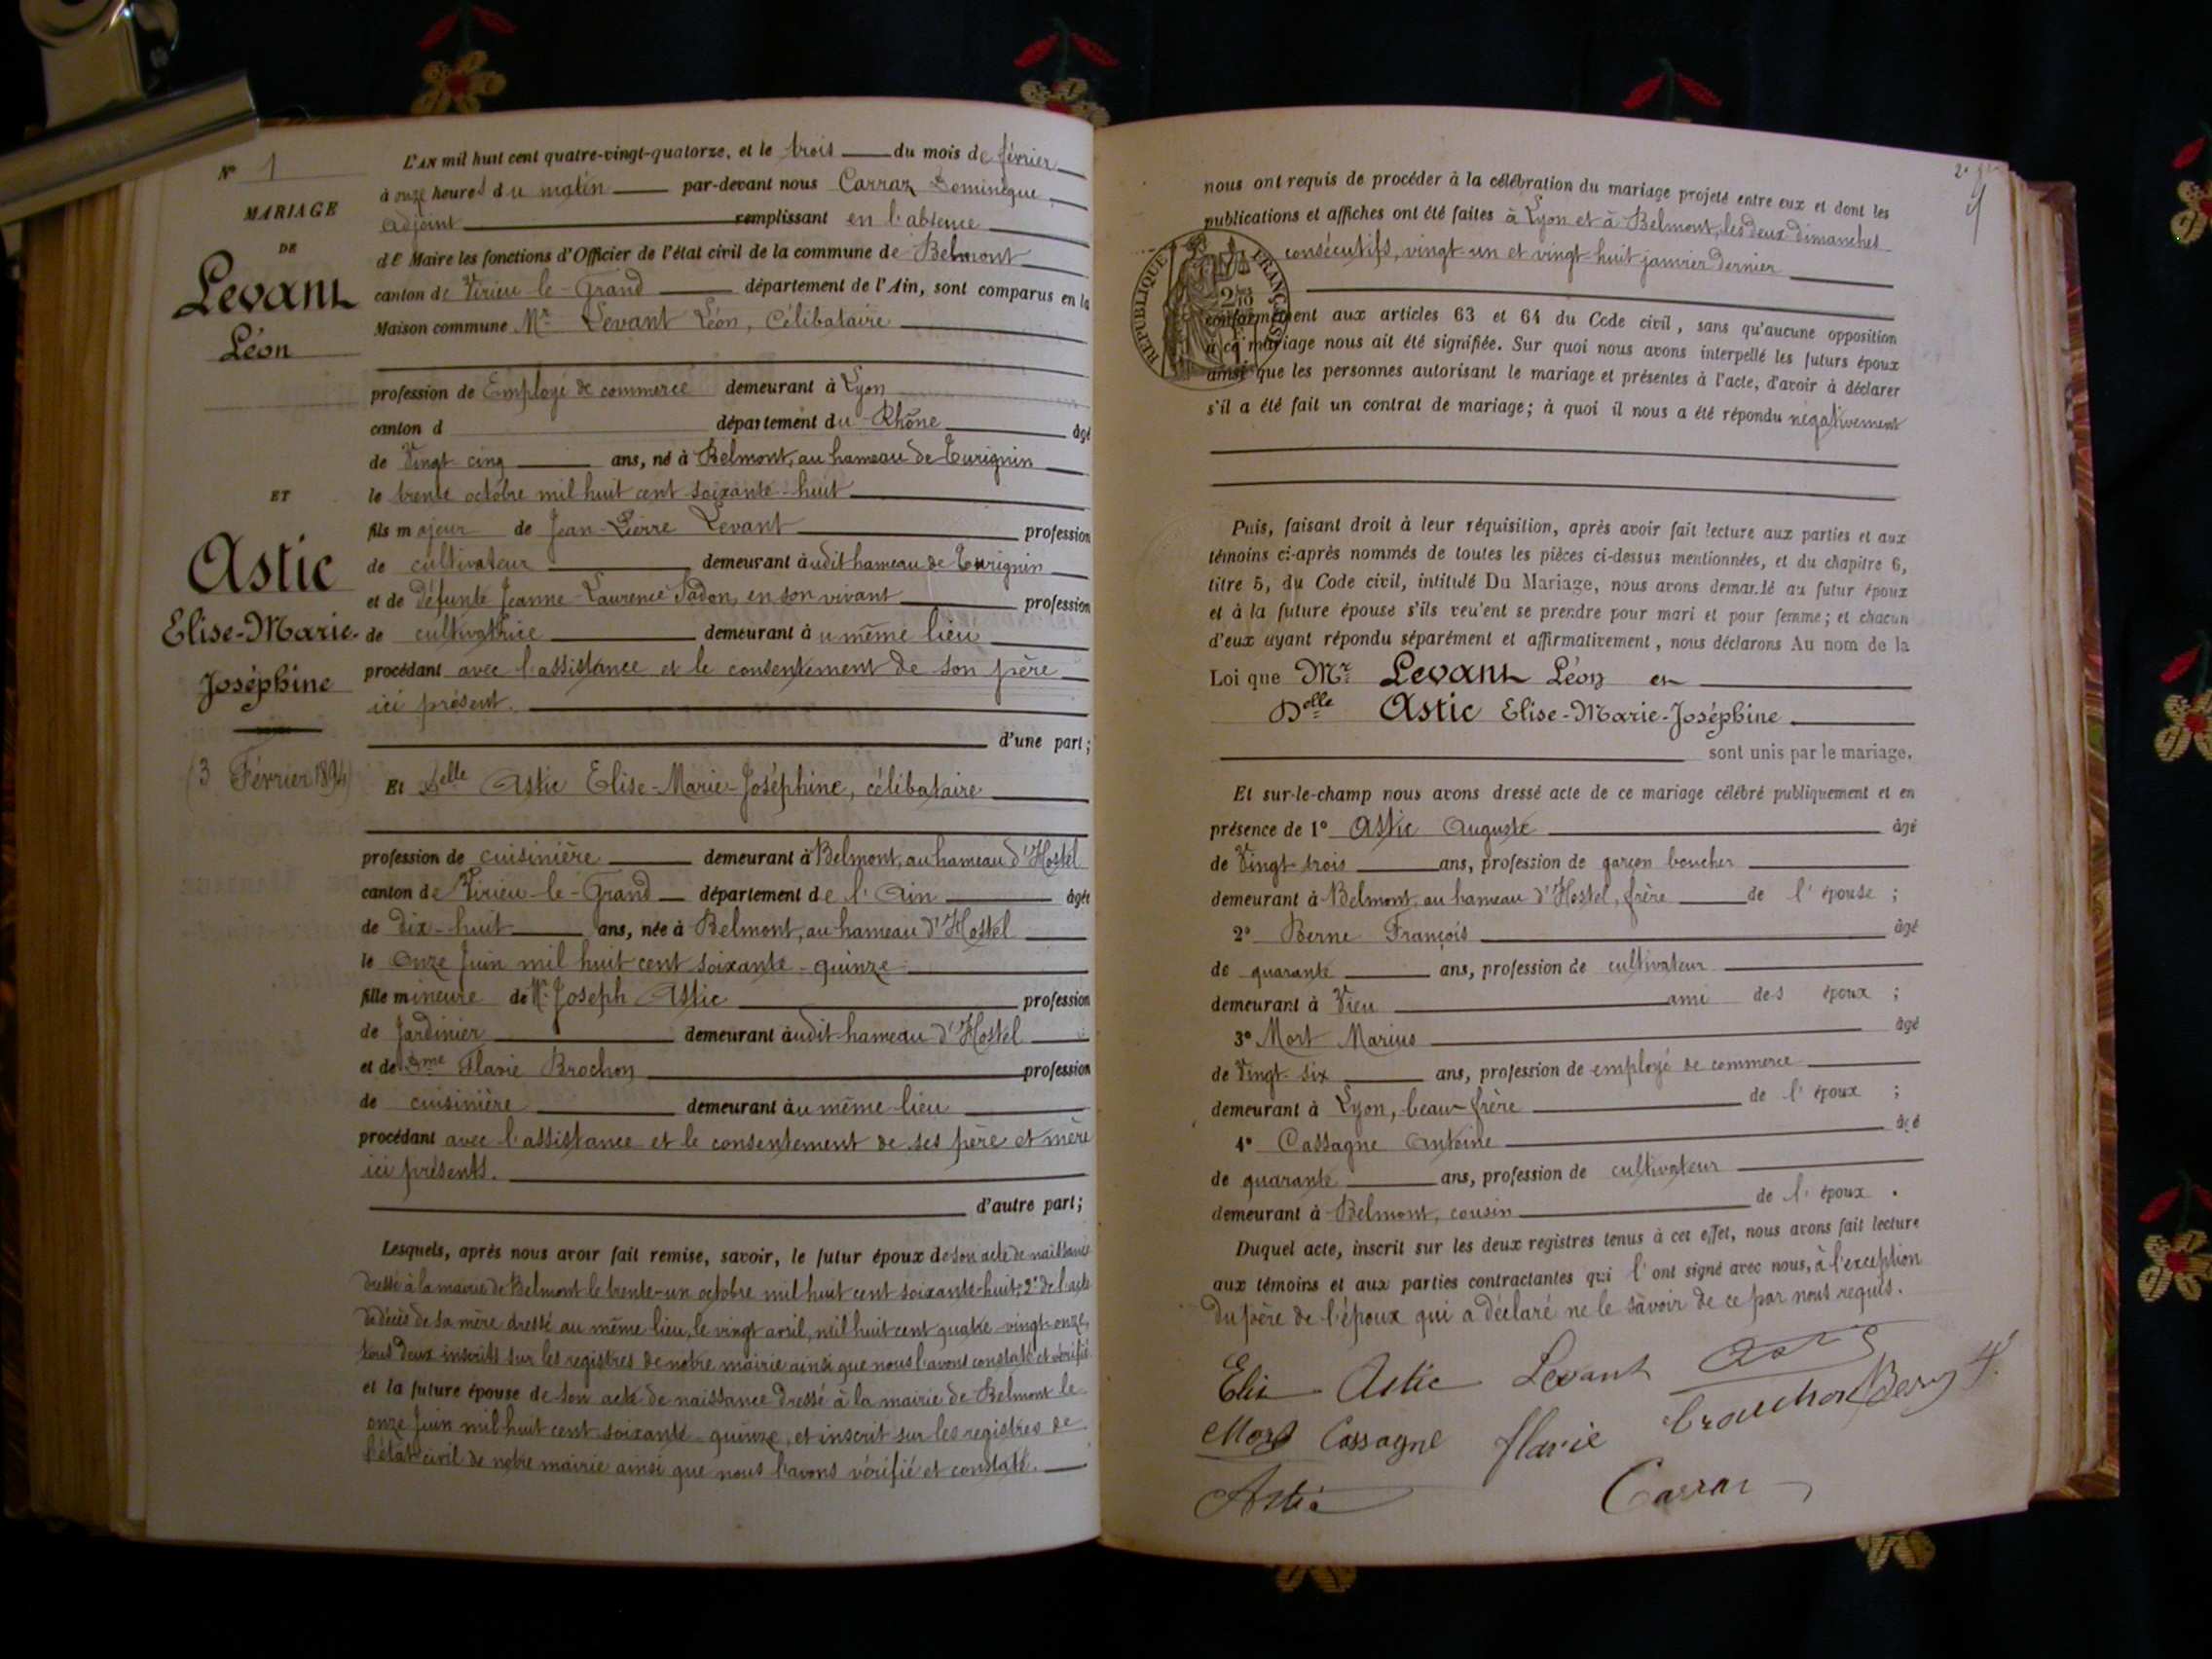 N° 1
MARIAGE
DE
Levant
Léon
ET
Astic
Elise-Marie-
Joséphine
(3 Février 1894)
L'AN mil huit cent quatre-vingt-quatorze, et le trois du mois de février
à onze heures du matin par-devant nous Carraz Dominique,
adjoint remplissant en l'absence
de Maire les fonctions d'Officier de l'état civil de la commune de Belmont
canton de Virieu-le-Grand département de l'Ain, sont comparus en la
Maison commune Mr Levant Léon, Célibataire
profession de Employé de commerce demeurant à Lyon
canton d département du Rhône âgé
de Vingt cinq ans, né à Belmont, au hameau de Thurignin
le trente octobre mil huit cent soixante-huit
fils majeur de Jean-Pierre Levant profession
de cultivateur demeurant audit hameau de Thurignin
et de défunte Jeanne-Laurence en son vivant profession
de cultivatrice demeurant au même lieu
procédant avec l'assistance et le consentement de son père
ici présent.
d'une part;
Et Delle Astic Elise-Marie-Joséphine, célibataire
profession de cuisinière demeurant à Belmont, au hameau d'Hostel
canton de Virieu-le-Grand département de l'Ain âgée
de dix-huit ans, née à Belmont, au hameau d'Hostel
le Onze Juin mil huit cent soixante-quinze
fille mineure de Mr Joseph Astic profession
de Jardinier demeurant audit hameau d'Hostel
et de Dme Flavie Brochon profession
de cuisinière demeurant au même lieu
procédant avec l'assistance et le consentement de ses père et mère
ici présents.
d'autre part;
Lesquels, après nous avoir fait remise, savoir, le futur époux de son acte de naissance
dressé à la mairie de Belmont le trente-un octobre mil huit cent soixante-huit; 2° de l'acte
de décès de sa mère dressé au même lieu, le vingt avril, mil huit cent quatre-vingt-onze,
tous deux inscrits sur les registres de notre mairie ainsi que nous l'avons constaté et vérifié
et la future épouse de son acte de naissance dressé à la mairie de Belmont le
onze Juin mil huit cent soixante-quinze, et inscrit sur les registres de
l'état civil de notre mairie ainsi que nous l'avons vérifié et constaté.
nous ont requis de procéder à la célébration du mariage projeté entre eux et dont les
publications et affiches ont été faites à Lyon et à Belmont, les deux dimanches
consécutifs, vingt-un et vingt-huit janvier dernier
REPUBLIQUE FRANÇAISE
conformément aux articles 63 et 64 du Code civil, sans qu'aucune opposition
à ce mariage nous ait été signifiée. Sur quoi nous avons interpellé les futurs époux
ainsi que les personnes autorisant le mariage et présentes à l'acte, d'avoir à déclarer
s'il a été fait un contrat de mariage; à quoi il nous a été répondu négativement
Puis, faisant droit à leur réquisition, après avoir fait lecture aux parties et aux
témoins ci-après nommés de toutes les pièces ci-dessus mentionnées, et du chapitre 6,
titre 5, du Code civil, intitulé Du Mariage, nous avons demandé au futur époux
et à la future épouse s'ils veulent se prendre pour mari et pour femme; et chacun
d'eux ayant répondu séparément et affirmativement, nous déclarons Au nom de la
Loi que Mr Levant Léon et
Delle Astic Elise-Marie-Joséphine
sont unis par le mariage.
Et sur-le-champ nous avons dressé acte de ce mariage célébré publiquement et en
présence de 1° Astic Auguste âgé
de Vingt-trois ans, profession de garçon boucher
demeurant à Belmont, au hameau d'Hostel, frère de l'épouse;
2° Berne François âgé
de quarante ans, profession de cultivateur
demeurant à Vieu ami des époux;
3° Mort Marius âgé
de Vingt-six ans, profession de employé de commerce
demeurant à Lyon, beau-frère de l'époux;
4° Cassagne Antoine âgé
de quarante ans, profession de cultivateur
demeurant à Belmont, cousin de l'époux.
Duquel acte, inscrit sur les deux registres tenus à cet effet, nous avons fait lecture
aux témoins et aux parties contractantes qui l'ont signé avec nous, à l'exception
du père de l'époux qui a déclaré ne le savoir de ce par nous requis.
Elise Astic Levant
Mort Cassagne flavie brochon Berne
Astic Carraz